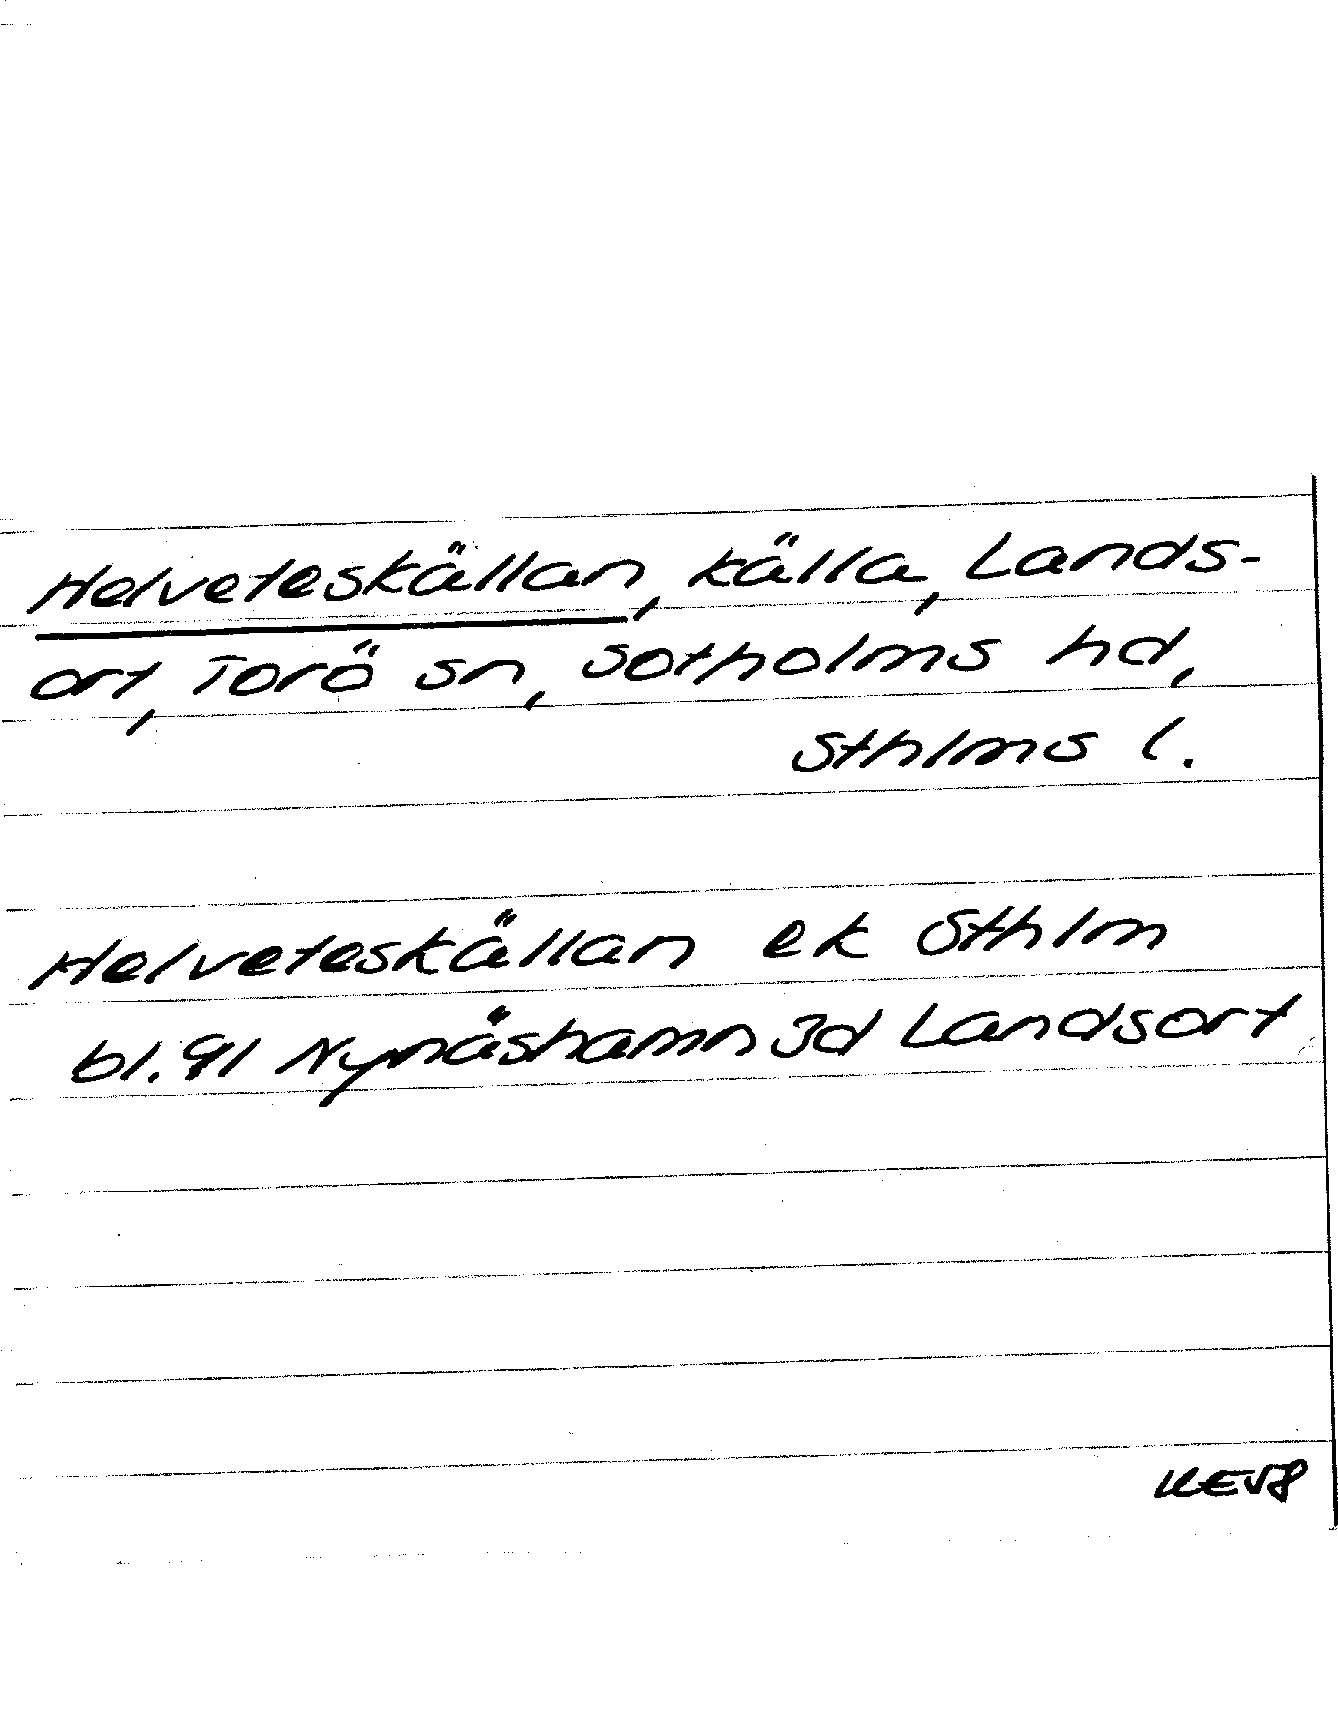 Helveteskällan, källa, Lands-
ort, Torö sn, Sotholms hd,
Sthlms l.
Helveteskällan ek Sthlm
bl. 91 Nynäshamn 3d Landsort